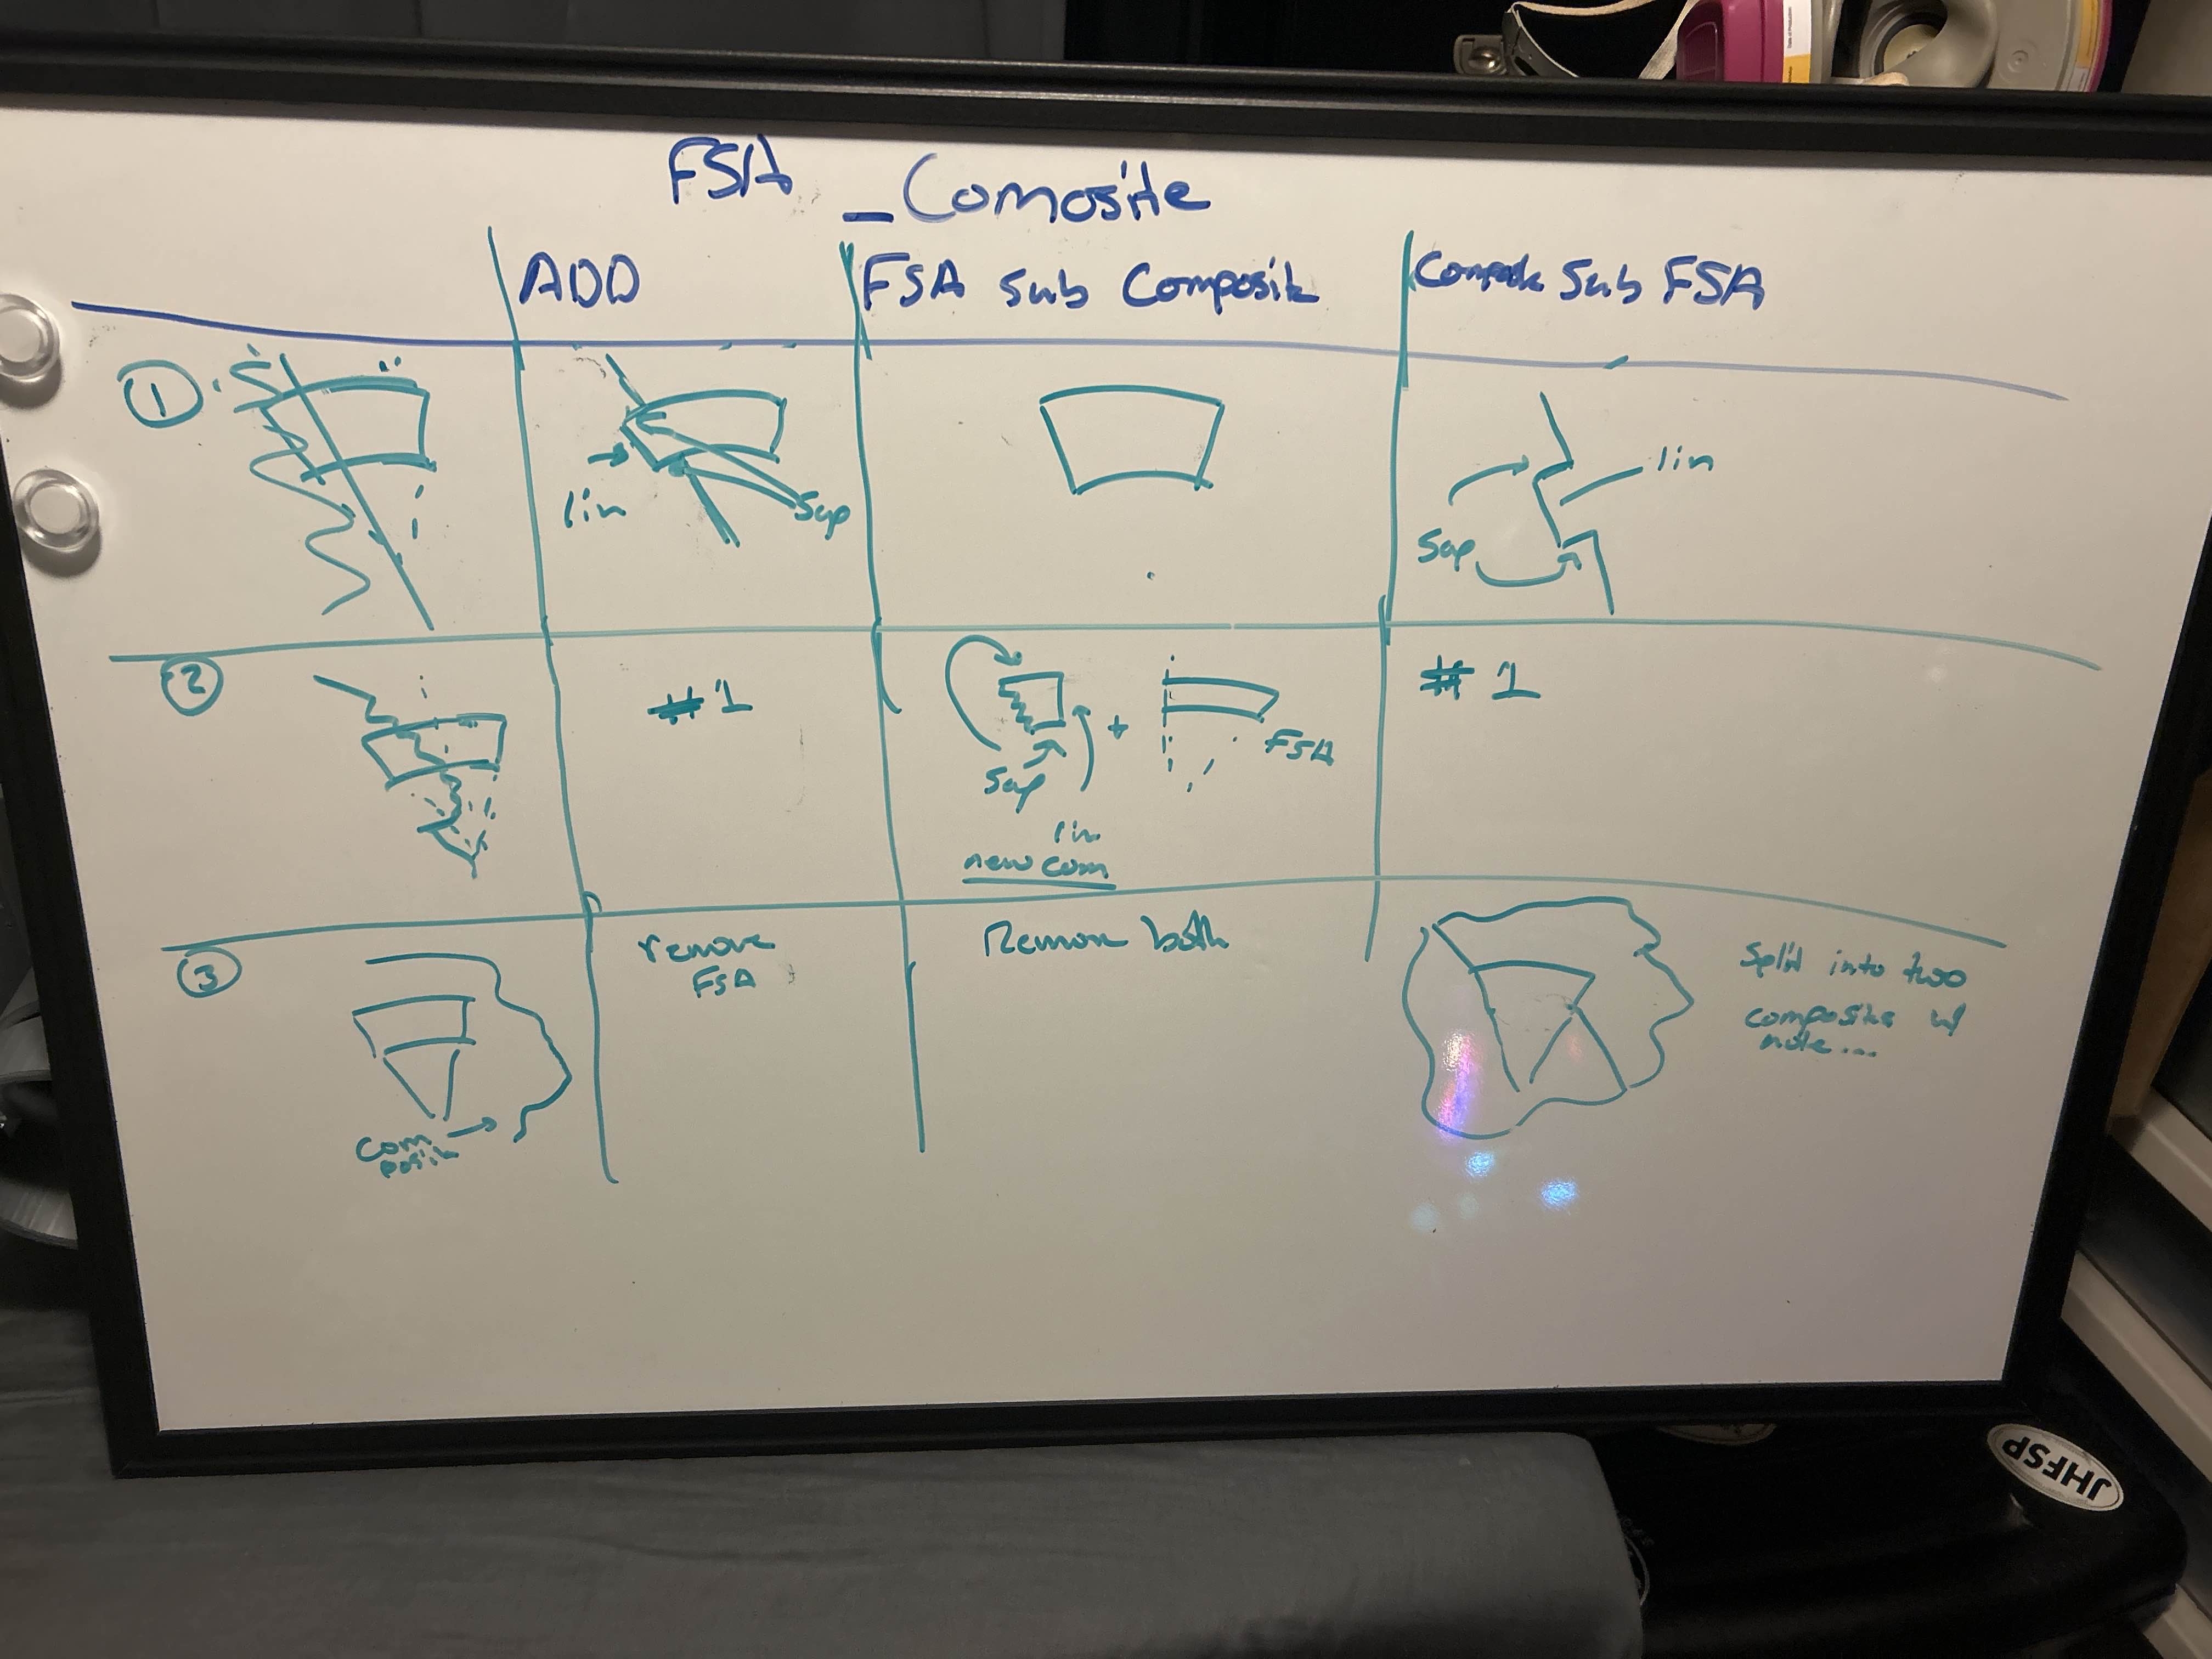 FSA _Comosite
ADD
FSA Sub Composite
Sub FSA
1
lin
Sap
lin
Sap
2
#1
Sap
+
FSA
lin
new com
#1
3
com
remove
FSA
Remove both
Split into two
composites w/
note...
JHFSP